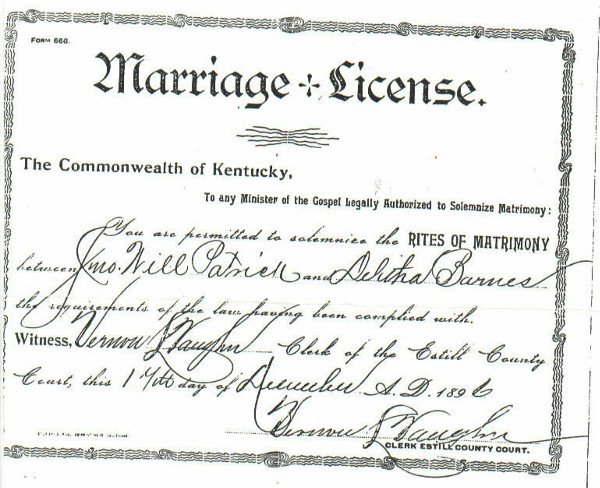 FORM 666.
Marriage License.
The Commonwealth of Kentucky,
To any Minister of the Gospel Legally Authorized to Solemnize Matrimony:
You are permitted to solemnize the RITES OF MATRIMONY
between Jno. Will Patrick and Delitha Barnes
the requirements of the law having been complied with.
Witness, Vernon L Vaughn Clerk of the Estill County
Court, this 17th day of December A. D. 1896
Vernon L Vaughn
CLERK ESTILL COUNTY COURT.